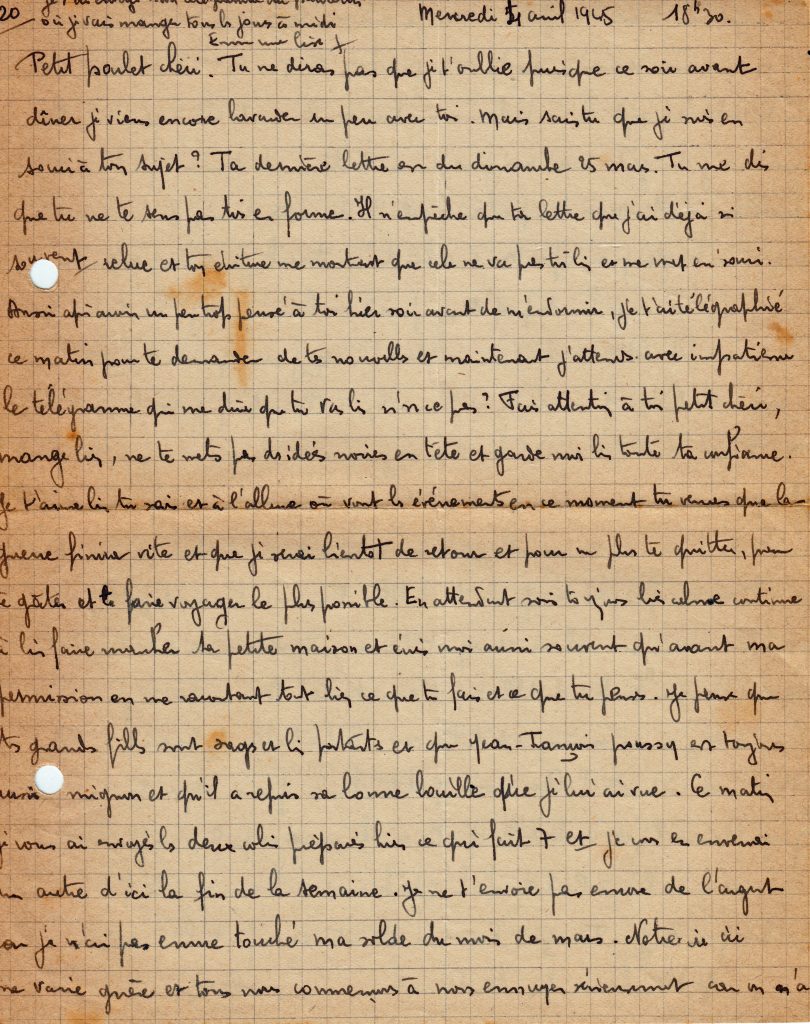 20
où je vais manger tous les jours à midi
Mercredi 4 avril 1945 18h30.
Petit poulet chéri. Tu ne diras pas que je t'oublie puisque ce soir avant
dîner je viens encore bavarder un peu avec toi. Mais sais tu que je suis en
souci à ton sujet ? Ta dernière lettre est du dimanche 25 mars. Tu me dis
que tu ne te sens pas très en forme. Il n'empêche que ta lettre que j'ai déjà si
souvent relue et ton écriture me montrent que cela ne va pas très bien et me met en souci.
Aussi après avoir un peu trop pensé à toi hier soir avant de m'endormir, je t'ai télégraphié
ce matin pour te demander de tes nouvelles et maintenant j'attends avec impatience
le télégramme qui me dira que tu vas bien n'est ce pas ? Fais attention à toi petit chéri,
mange bien, ne te mets pas des idées noires en tête et garde moi bien toute ta confiance.
Je t'aime bien tu sais et à l'allure où vont les événements en ce moment tu verras que la
guerre finira vite et que je serai bientôt de retour et pour ne plus te quitter, pour
te gâter et te faire voyager le plus possible. En attendant sois toujours bien calme continue
à bien faire marcher ta petite maison et écris moi aussi souvent qu'avant ma
permission en me racontant tout bien ce que tu fais et ce que tu penses. Je pense que
tes grands filles sont sages et bien portants et que Jean-François poussy est toujours
aussi mignon et qu'il a repris sa bonne bouille que je lui ai vue. Ce matin
je vous ai envoyés les deux colis préparés hier ce qui fait 7 et je vous en enverrai
un autre d'ici la fin de la semaine. Je ne t'envoie pas encore de l'argent
car je n'ai pas encore touché ma solde du mois de mars. Notre vie ici
ne varie guère et tous nous commençons à nous ennuyer sérieusement car on n'a